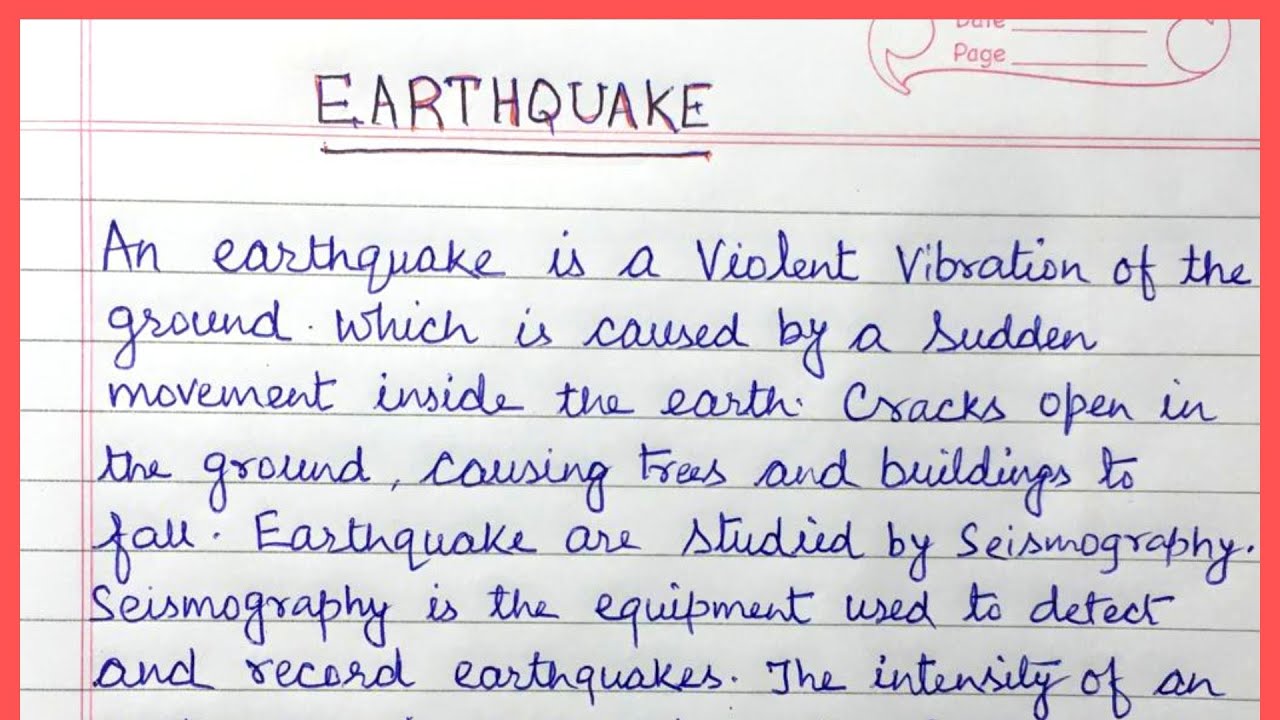 Date
Page
EARTHQUAKE
An earthquake is a Violent Vibration of the
ground. Which is caused by a sudden
movement inside the earth. Cracks open in
the ground, causing trees and buildings to
fall. Earthquake are studied by Seismography.
Seismography is the equipment used to detect
and record earthquakes. The intensity of an